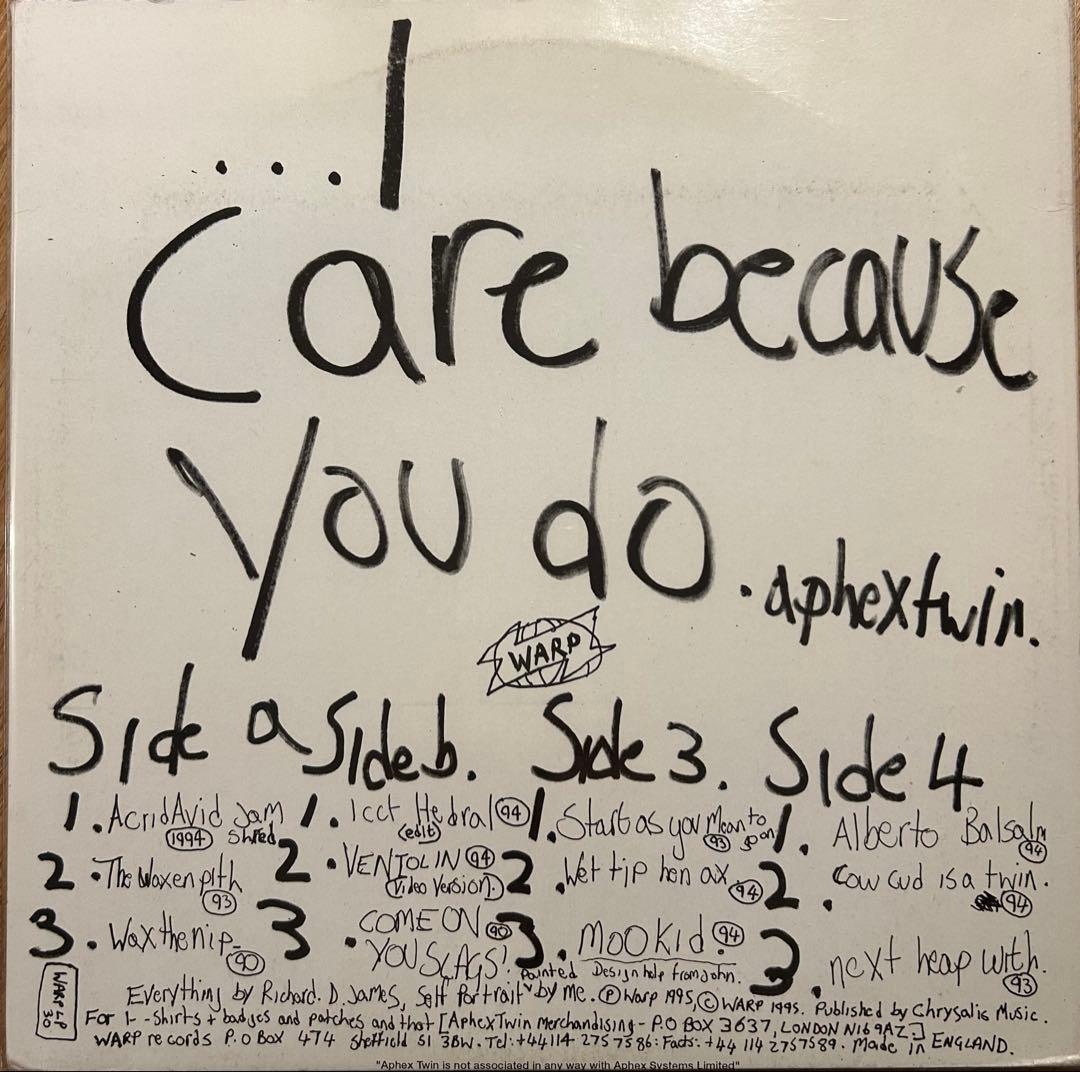 ...I
Care because
you do.aphextwin.
WARP
Side a Side b. Side 3. Side 4
1. AcridAvid Jam Shred (1994)
2. The Waxen pith (93)
3. Wax the nip (90)
1. Icct Hedral (94) (edit)
2. VENTOLIN (94) (Video Version.)
3. COME ON (90) YOU SLAGS!
1. Start as you Mean to go on (93)
2. Wet tip hen ax. (94)
3. MOOKid. (94)
1. Alberto Balsalm (94)
2. Cow cud is a twin. (94)
3. next heap with. (93)
WARP LP 30
Everything by Richard. D. James, Self Portrait painted by me. Design help from John. Ⓟ Warp 1995, © WARP 1995. Published by Chrysalis Music.
For T--Shirts + badges and patches and that [AphexTwin Merchandising - P.O BOX 3637, LONDON N16 9AZ]
WARP records P.O Box 474 Sheffield S1 3BW. Tel: +44114 2757586: Facts: +44 114 2757589. Made in ENGLAND.
"Aphex Twin is not associated in any way with Aphex Systems Limited"